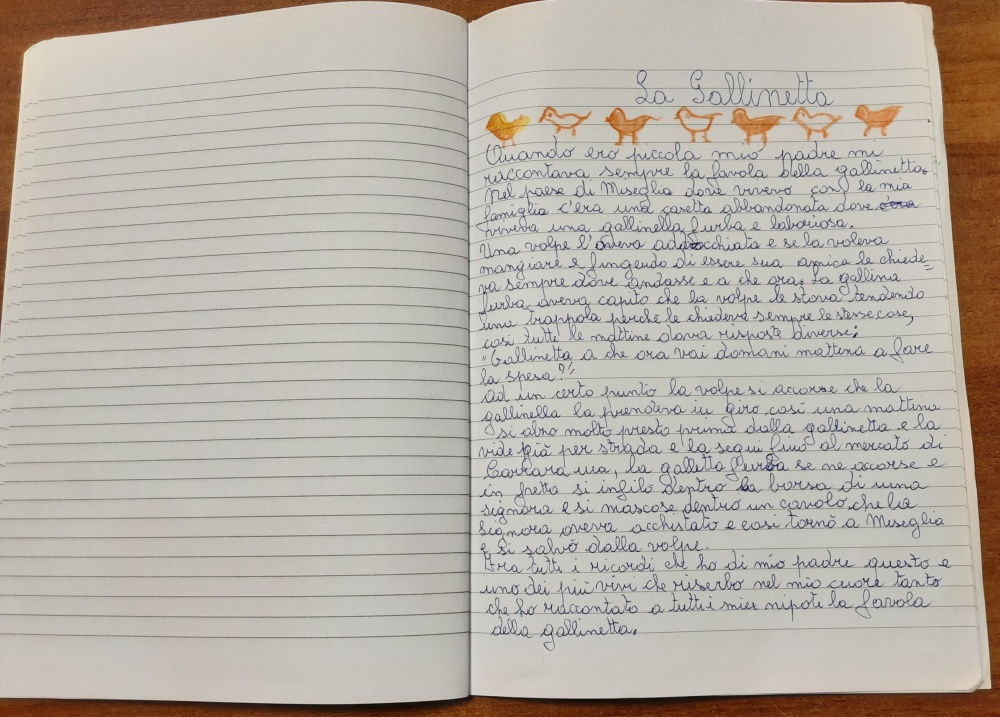 La Gallinetta
Quando ero piccola mio padre mi
raccontava sempre la favola della gallinetta.
Nel paese di Miseglia dove vivevo con la mia
famiglia c'era una casetta abbandonata dove c'era
viveva una gallinella furba e laboriosa.
Una volpe l'aveva adocchiata e se la voleva
mangiare e fingendo di essere sua amica le chiede=
va sempre dove andasse e a che ora. La gallina
furba aveva capito che la volpe le stava tendendo
una trappola perché le chiedeva sempre le stesse cose,
così tutte le mattine dava risposte diverse:
"Gallinetta a che ora vai domani mattina a fare
la spesa?"
ad un certo punto la volpe si accorse che la
gallinella la prendeva in giro così una mattina
si alzò molto presto prima dalla gallinetta e la
vide già per strada e la seguì fino al mercato di
Carrara ma, la galletta furba se ne accorse e
in fretta si infilò dentro la borsa di una
signora e si nascose dentro un cavolo che la
signora aveva acchistato e così tornò a Miseglia
e si salvò dalla volpe.
Fra tutti i ricordi che ho di mio padre questo e
uno dei più vivi che riserbo nel mio cuore tanto
che ho raccontato a tutti i miei nipoti la favola
della gallinetta.